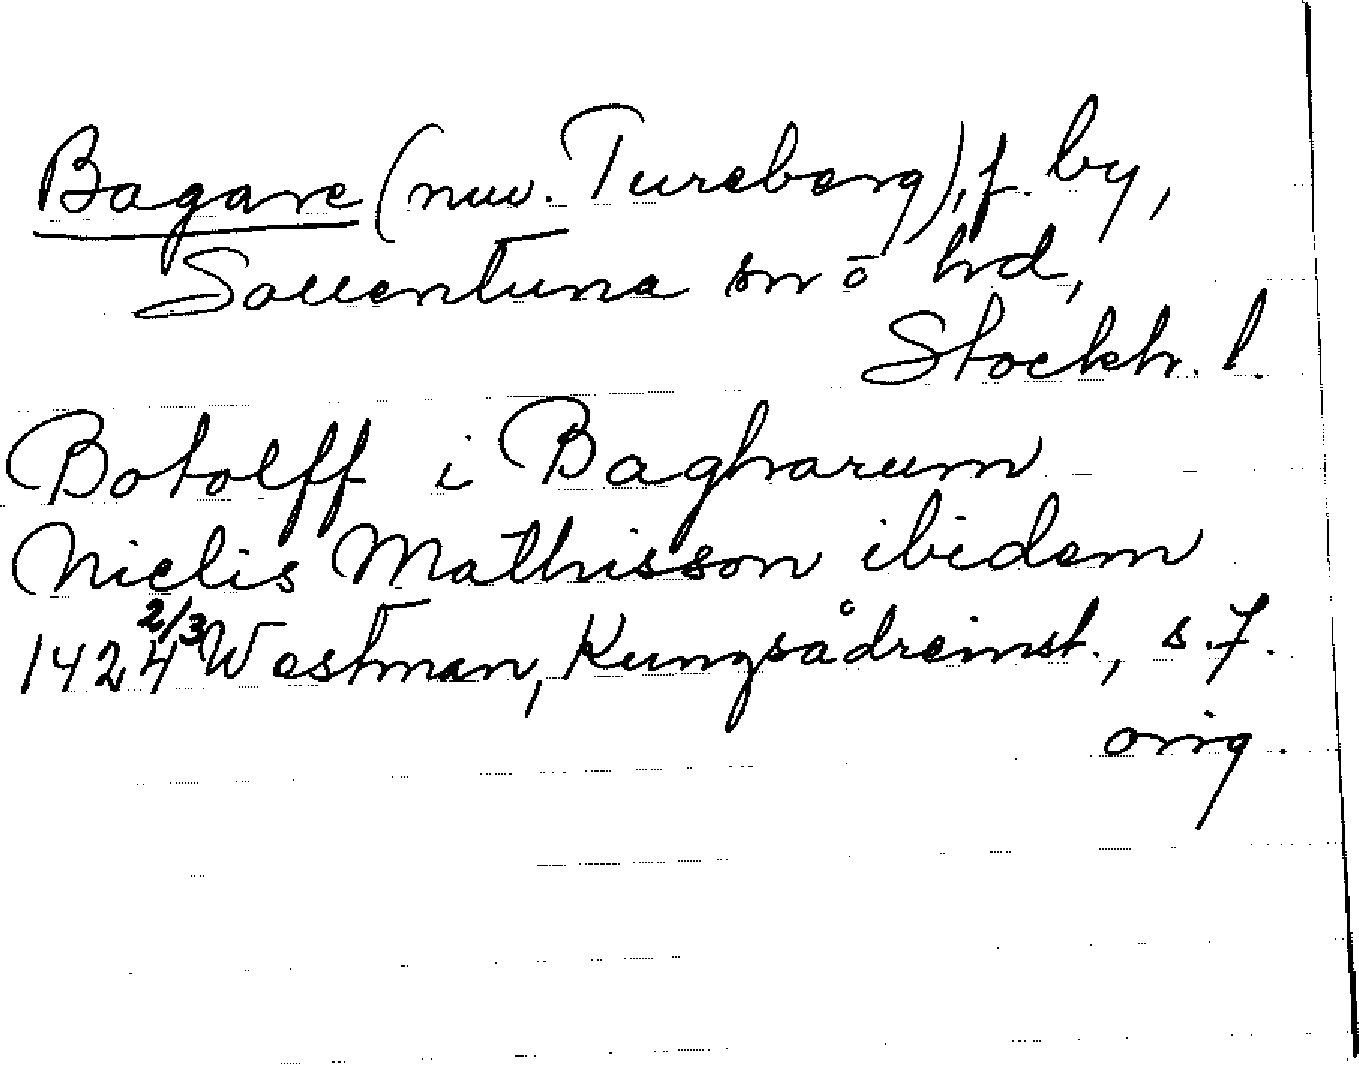 Bagare (nuv. Tureberg), f. by,
Sollentuna sn o hd,
Stockh. l.
Botolff i Bagharum
Niclis Mathisson ibidem
1424 2/3 Westman, Kungsådreinst., s. 7.
orig.